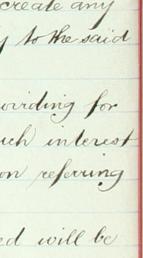 create any
to the said
oviding for
uch interest
on referring
ed will be